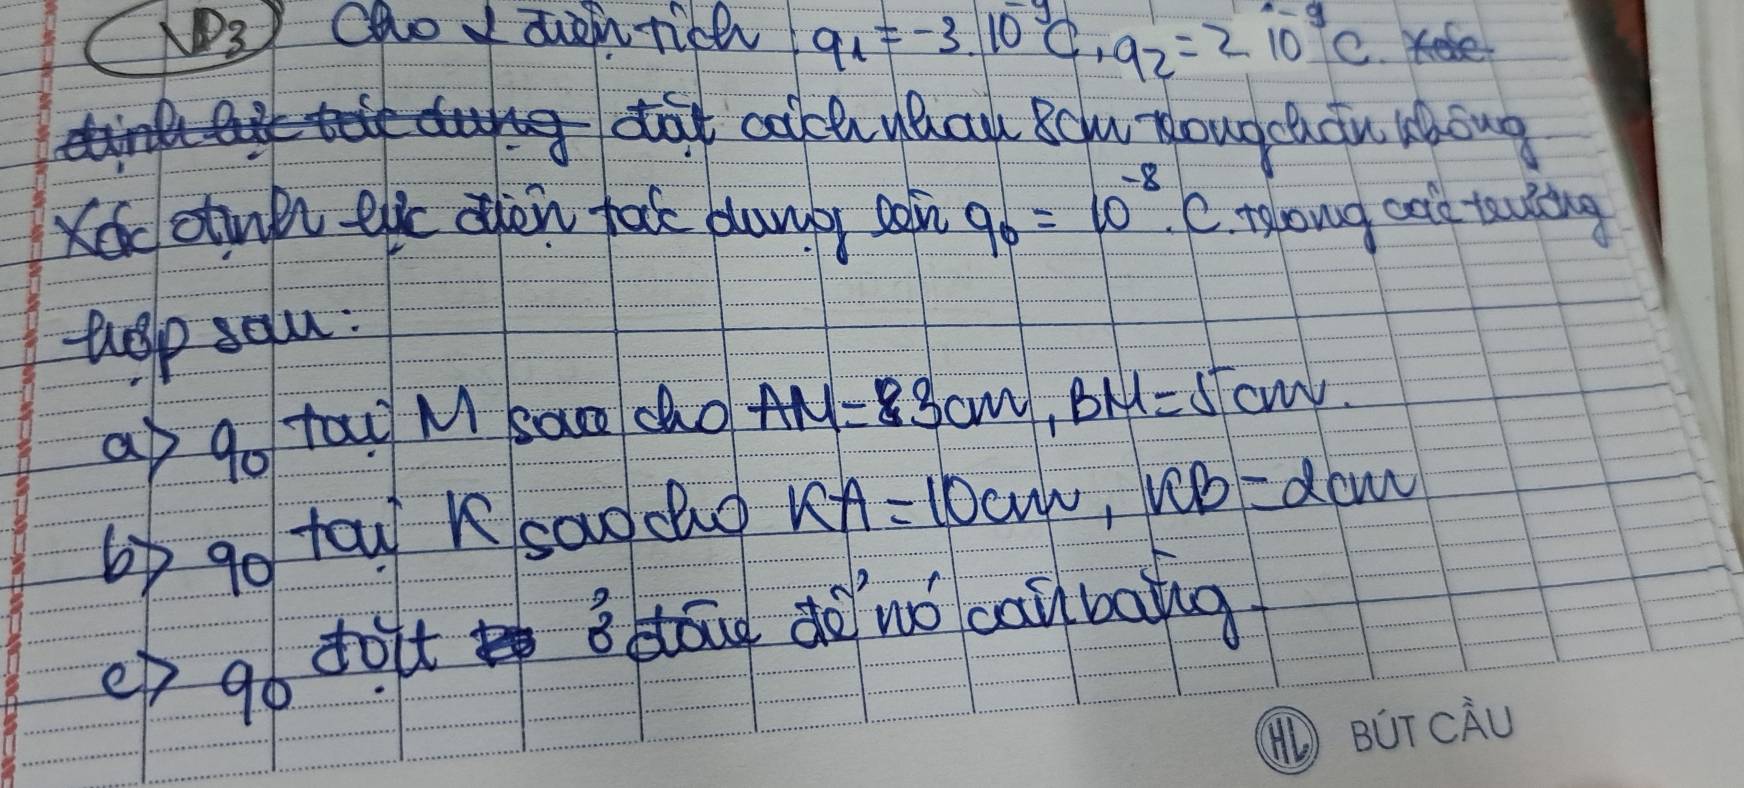 VD3) Cho 2 điện tích q1 = -3.10^-9 C, q2 = 2 10^-9 C. Xác
định lực tác dụng đặt cách nhau 8cm trong chân không
Xác định lực điện tác dụng lên q0 = 10^-8. C. trong các trường
hợp sau:
a> q0 tại M sao cho AM = 3cm, BM = 5cm.
b> q0 tại K sao cho KA = 10cm, KB = 2cm
c> q0 đặt ở đâu để nó cân bằng
HL BÚT CẦU